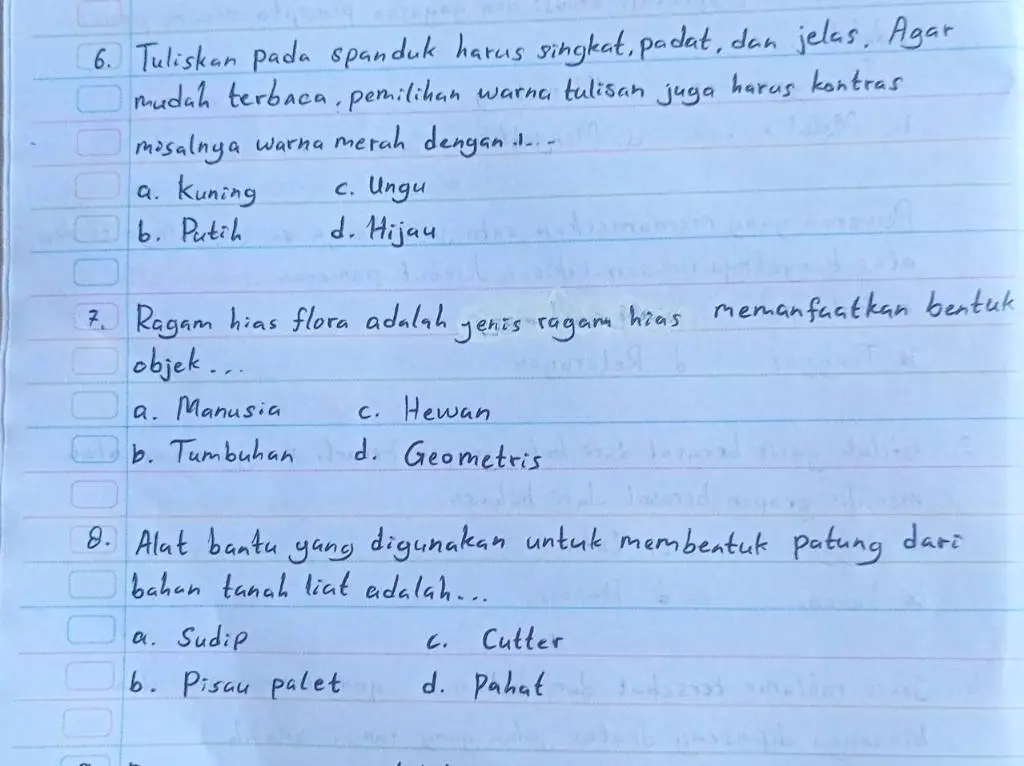 6. Tuliskan pada spanduk harus singkat, padat, dan jelas. Agar
mudah terbaca, pemilihan warna tulisan juga harus kontras
misalnya warna merah dengan ....
a. Kuning c. Ungu
b. Putih d. Hijau
7. Ragam hias flora adalah yenis ragam hias memanfaatkan bentuk
objek ...
a. Manusia c. Hewan
b. Tumbuhan d. Geometris
8. Alat bantu yang digunakan untuk membentuk patung dari
bahan tanah liat adalah...
a. Sudip c. Cutter
b. Pisau palet d. Pahat